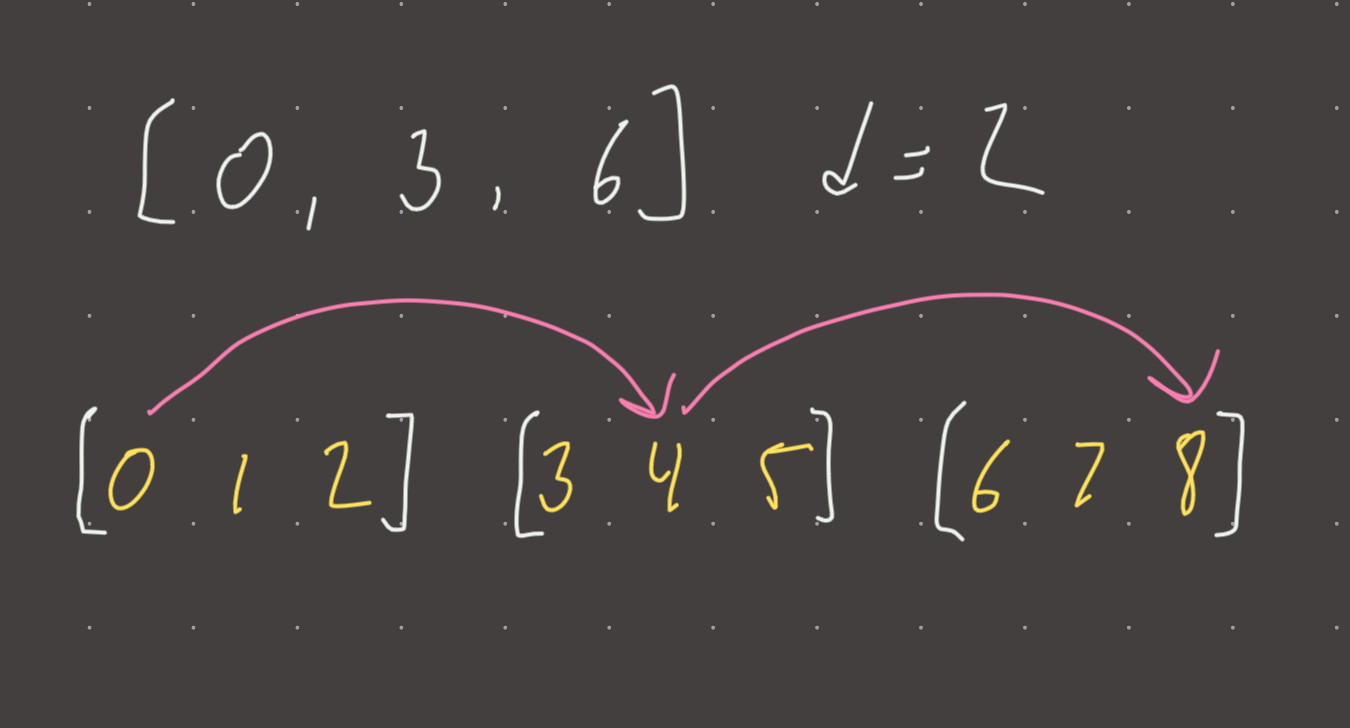 [0, 3, 6] d = 2
[0 1 2] [3 4 5] [6 7 8]